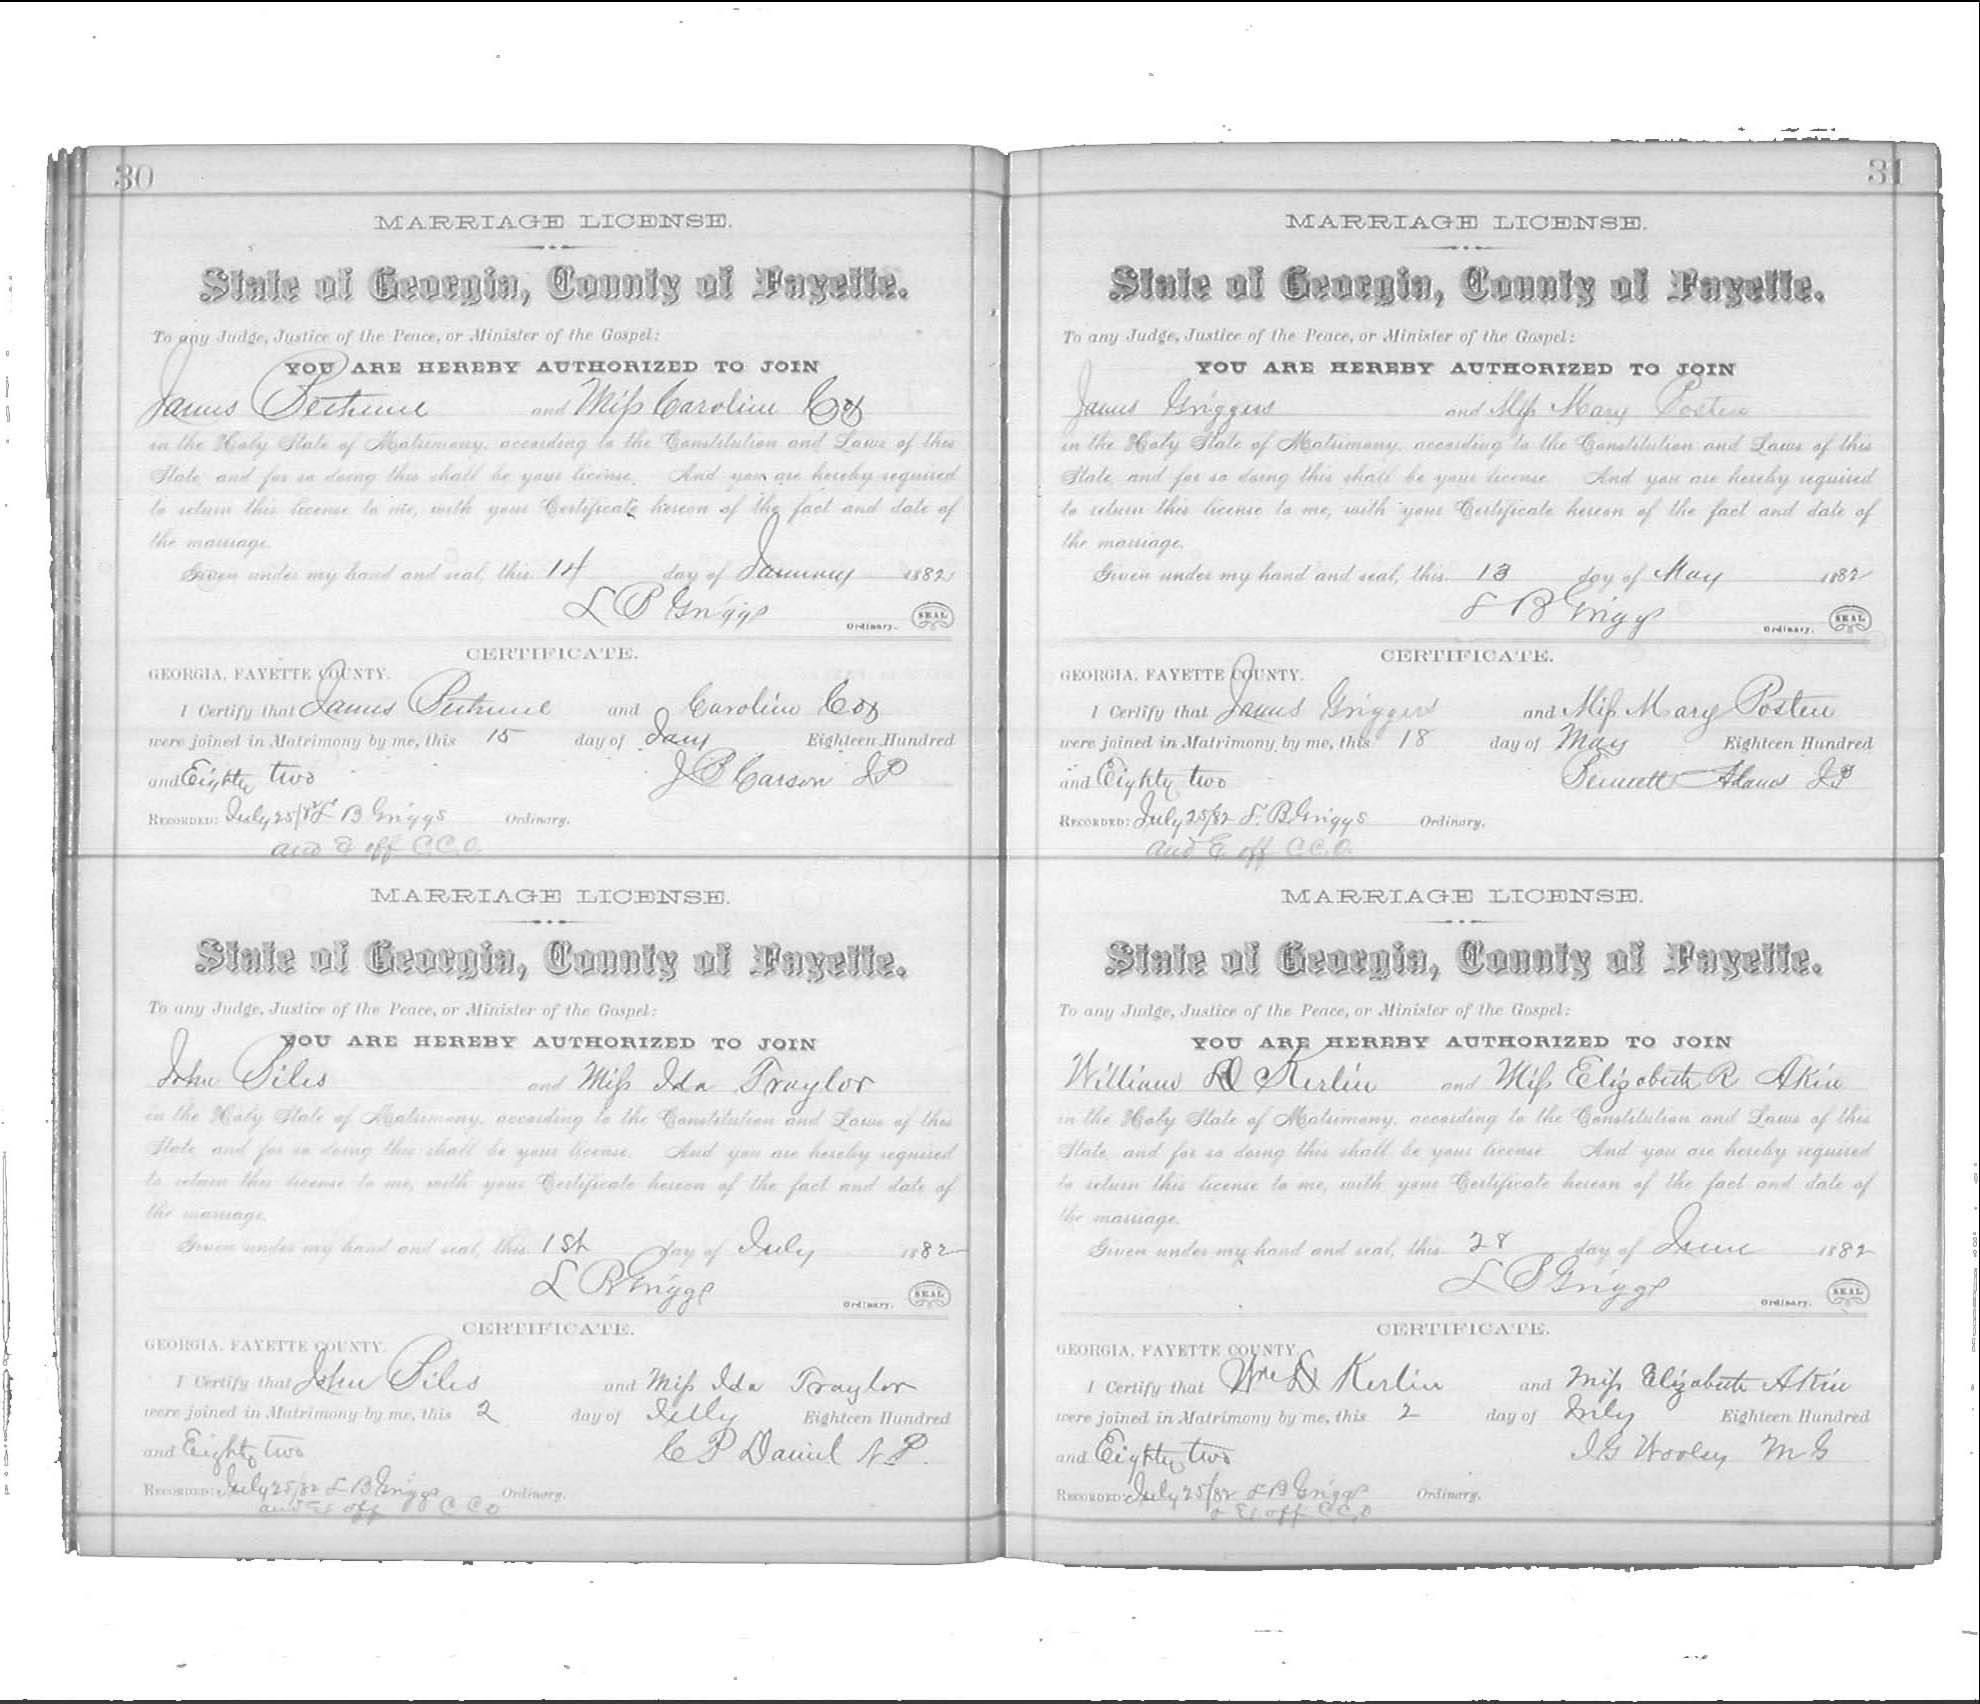 30
MARRIAGE LICENSE.
State of Georgia, County of Fayette.
To any Judge, Justice of the Peace, or Minister of the Gospel:
YOU ARE HEREBY AUTHORIZED TO JOIN
James and Miss Caroline Cox
in the Holy State of Matrimony, according to the Constitution and Laws of this
State, and for so doing this shall be your license. And you are hereby required
to return this license to me, with your Certificate hereon of the fact and date of
the marriage.
Given under my hand and seal, this 14 day of January 1882
L B Griggs
Ordinary. SEAL
CERTIFICATE.
GEORGIA, FAYETTE COUNTY.
I Certify that James and Caroline Cox
were joined in Matrimony by me, this 15 day of Jany Eighteen Hundred
and Eighty two J P Carson JP
RECORDED: July 25/82 L B Griggs Ordinary.
and E off C.C.O.
MARRIAGE LICENSE.
State of Georgia, County of Fayette.
To any Judge, Justice of the Peace, or Minister of the Gospel:
YOU ARE HEREBY AUTHORIZED TO JOIN
John Siles and Miss Ida Traylor
in the Holy State of Matrimony, according to the Constitution and Laws of this
State, and for so doing this shall be your license. And you are hereby required
to return this license to me, with your Certificate hereon of the fact and date of
the marriage.
Given under my hand and seal, this 1st day of July 1882
L B Griggs
Ordinary. SEAL
CERTIFICATE.
GEORGIA, FAYETTE COUNTY.
I Certify that John Siles and Miss Ida Traylor
were joined in Matrimony by me, this 2 day of July Eighteen Hundred
and Eighty two C P Daniel N.P.
RECORDED: July 25/82 L B Griggs Ordinary.
and E off C C O
31
MARRIAGE LICENSE.
State of Georgia, County of Fayette.
To any Judge, Justice of the Peace, or Minister of the Gospel:
YOU ARE HEREBY AUTHORIZED TO JOIN
James Griggers and Miss Mary Posten
in the Holy State of Matrimony, according to the Constitution and Laws of this
State, and for so doing this shall be your license. And you are hereby required
to return this license to me, with your Certificate hereon of the fact and date of
the marriage.
Given under my hand and seal, this 13 day of May 1882
L B Griggs
Ordinary. SEAL
CERTIFICATE.
GEORGIA, FAYETTE COUNTY.
I Certify that James Griggers and Miss Mary Posten
were joined in Matrimony by me, this 18 day of May Eighteen Hundred
and Eighty two Bennett Adams JP
RECORDED: July 25/82 L. B. Griggs Ordinary.
and E. off C.C.O.
MARRIAGE LICENSE.
State of Georgia, County of Fayette.
To any Judge, Justice of the Peace, or Minister of the Gospel:
YOU ARE HEREBY AUTHORIZED TO JOIN
William D Kerlin and Miss Elizabeth R Akin
in the Holy State of Matrimony, according to the Constitution and Laws of this
State, and for so doing this shall be your license. And you are hereby required
to return this license to me, with your Certificate hereon of the fact and date of
the marriage.
Given under my hand and seal, this 28 day of June 1882
L B Griggs
Ordinary. SEAL
CERTIFICATE.
GEORGIA, FAYETTE COUNTY.
I Certify that Wm D Kerlin and Miss Elizabeth Akin
were joined in Matrimony by me, this 2 day of July Eighteen Hundred
and Eighty two J G Woolsey M G
RECORDED: July 25/82 L B Griggs Ordinary.
& E off C.C.O